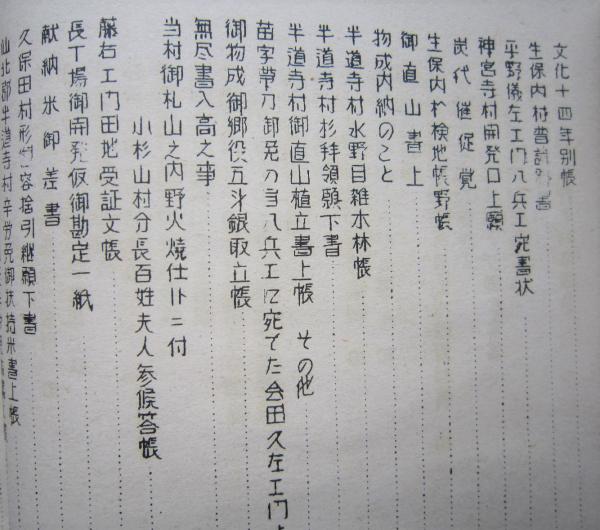 文化十四年別帳
生保内村普請
平野儀左エ門八兵エ宛書状
神宮寺村開発口上願
炭代催促覚
生保内村検地帳野帳
御直山書上
物成内納のこと
半道寺村水野目雑木林帳
半道寺村杉拝領願下書
半道寺村御直山植立書上帳 その他
苗字帯刀御免の 八兵エに宛てた会田久左エ門
御物成御郷役五斗銀取立帳
無尽書入高之事
当村御札山之内野火焼仕卜ニ付
小杉山村分長百姓夫人参候答帳
藤右エ門田地受証文帳
長丁場御開発仮御勘定一紙
献納米御差書
久保田村形 容捨引継願下書
仙北郡半道寺村辛労免御扶持米書上帳